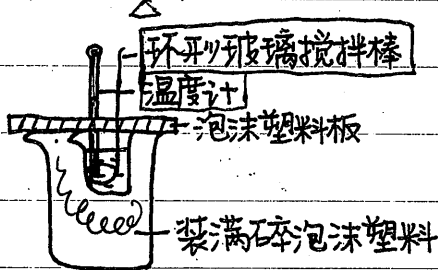 环形玻璃搅拌棒
温度计
泡沫塑料板
装满碎泡沫塑料